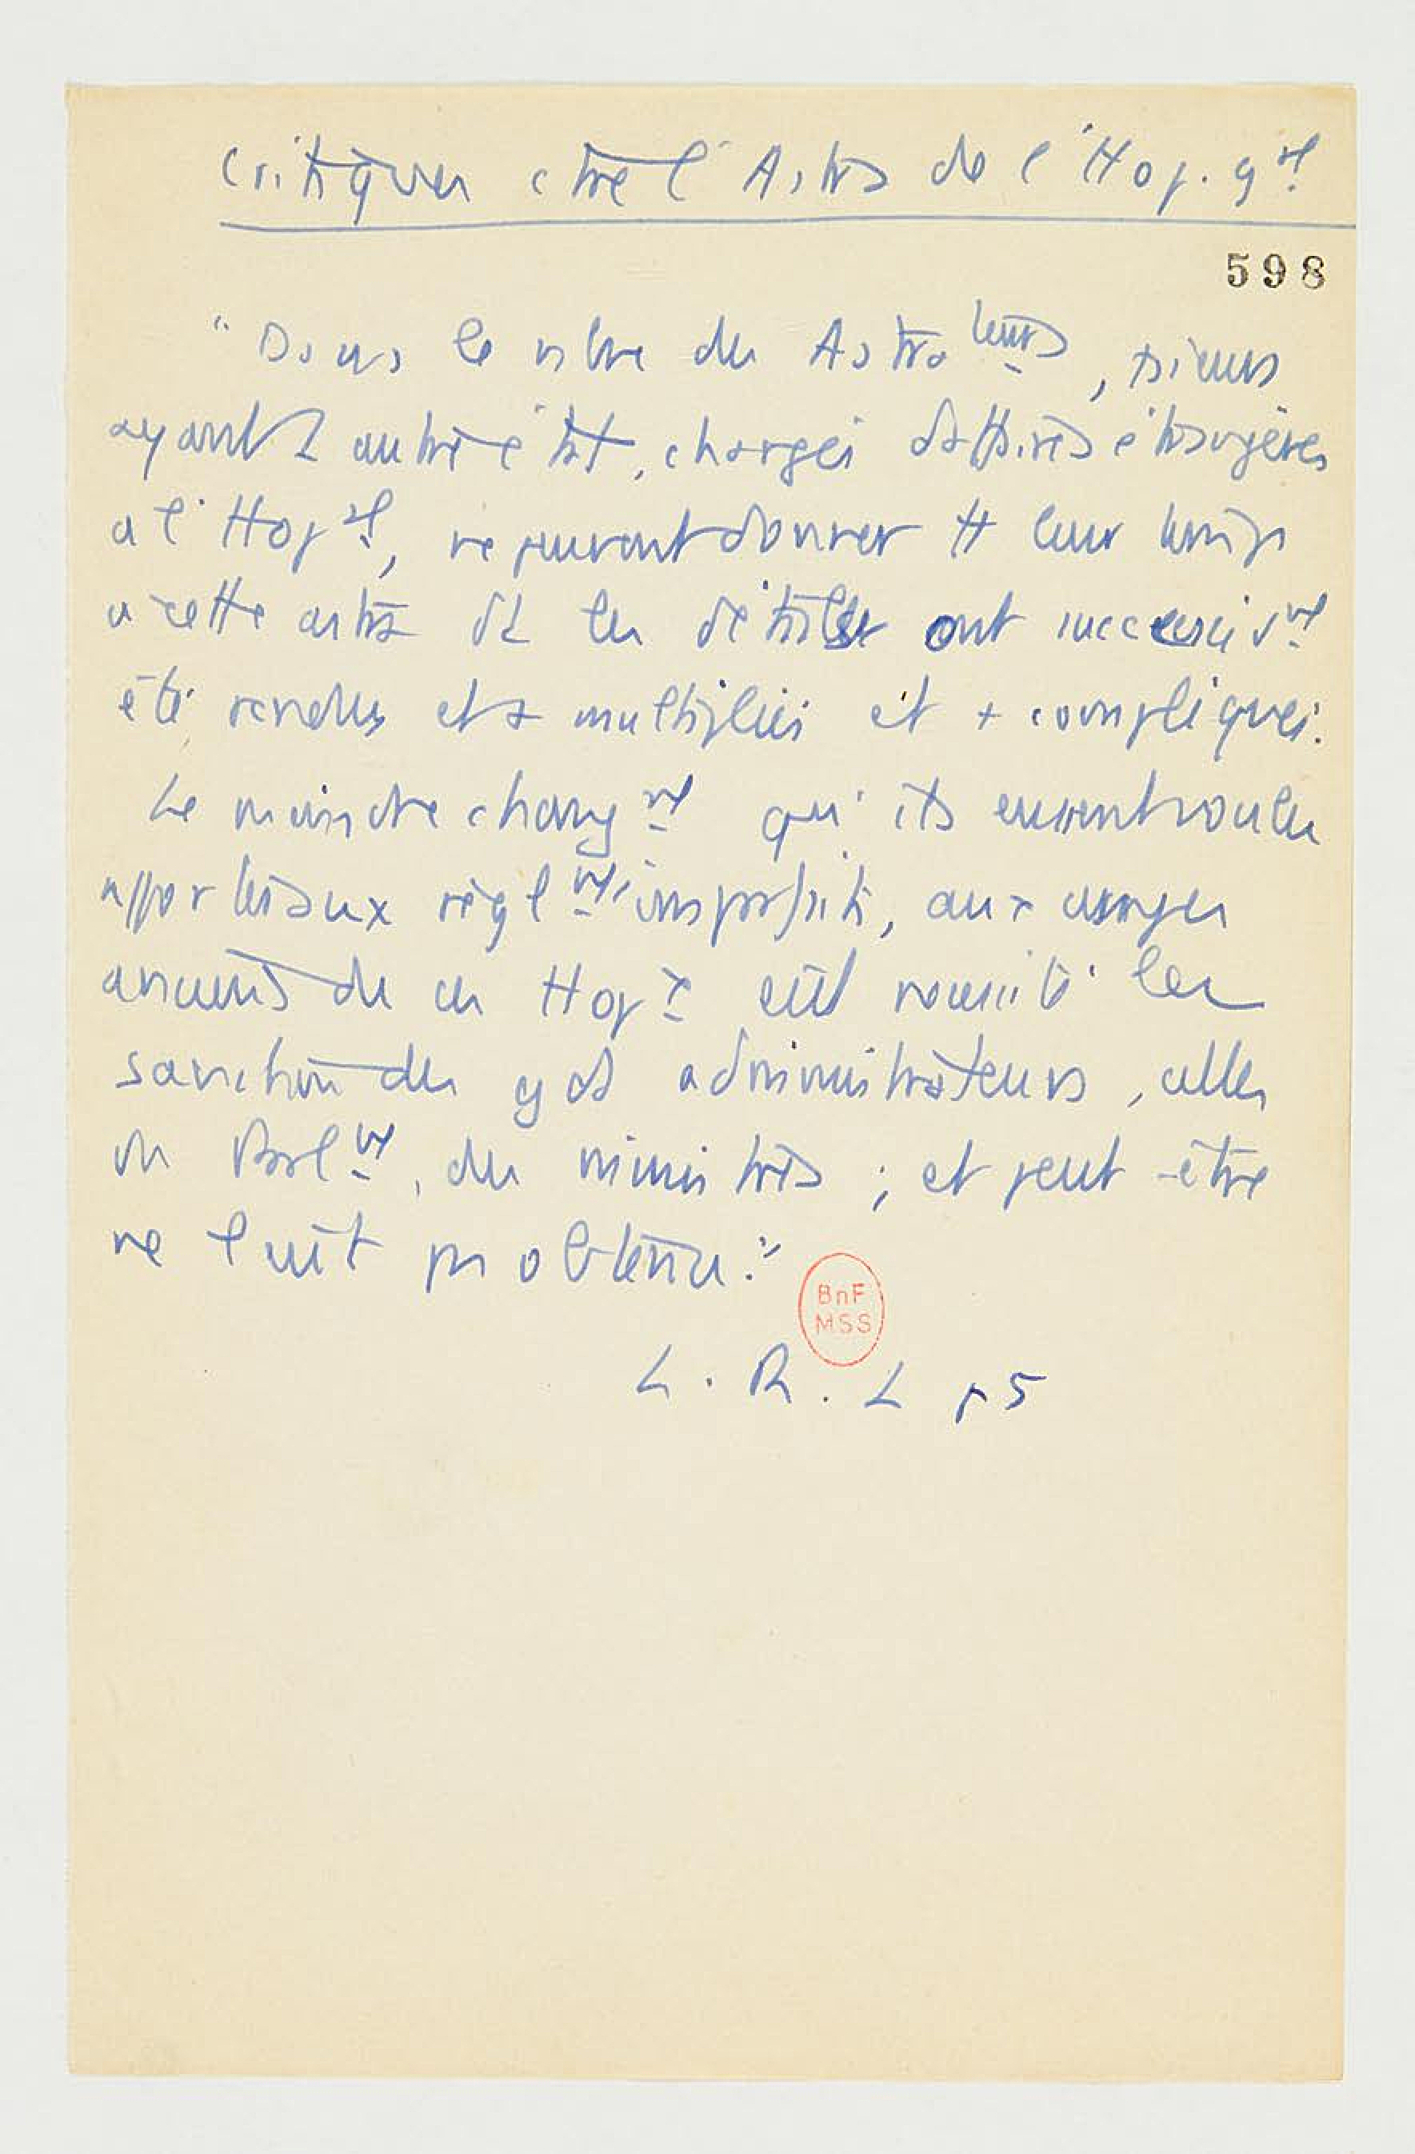 Critiques c tre l'Astra de l'Hop. gal
598
"Dans le nbre des Astrateurs, psieurs
ayant 1 autre état, chargés d'affaires étrangères
à l'Hopal, ne peuvent donner tt leur temps
à cette astra dt les détails ont successivt
été rendus et + multipliés et + compliqués.
Le moindre changt qu'ils eussent voulu
apporter aux règlts imparfaits, aux usages
anciens de ces Hopx eût nécessité les
sanction des gds administrateurs, celles
du Parlt, des ministres ; et peut-être
ne l'eût pas obtenu."
L. R. L p5
BnF
MSS